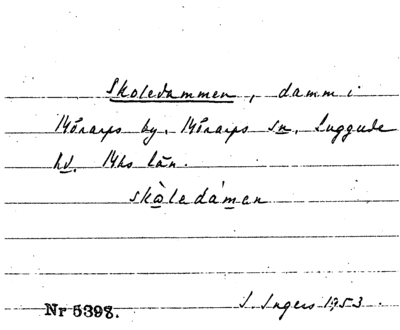 Skoledammen, damm i
Mörarps by. Mörarps sn. Luggude
hd. Mhs län.
skòledámen
Nr 5398. I. Ingers 1953.